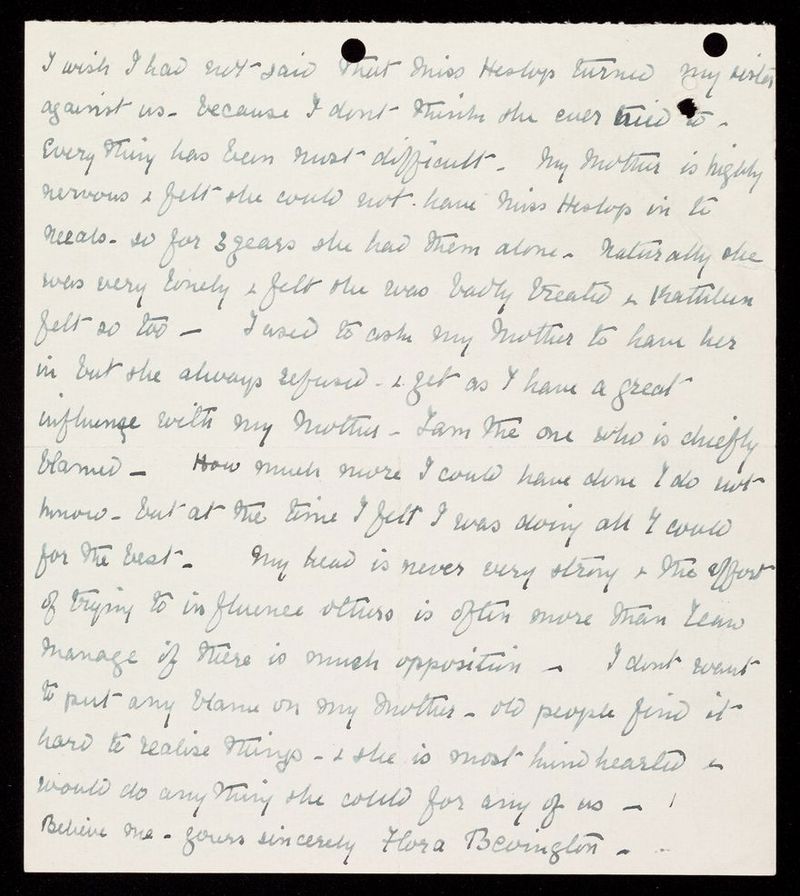 I wish I had not said that Miss Heslop turned my sister
against us - because I dont think she ever tried to -
Every thing has been most difficult - My Mother is highly
nervous & felt she could not have Miss Heslop in to
Meals - so for 3 years she had them alone - Naturally she
was very lonely & felt she was badly treated & Kathleen
felt so too - I used to ask my Mother to have her
in but she always refused - & yet as I have a great
influence with my Mother - I am the one who is chiefly
blamed - How much more I could have done I do not
know - but at the time I felt I was doing all I could
for the best - My head is never very strong & the effort
of trying to influence others is often more than I can
manage if there is much opposition - I dont want
to put any blame on my Mother - old people find it
hard to realise things - & she is most kindhearted &
would do any thing she could for any of us -
Believe me - yours sincerely Flora Bevington -